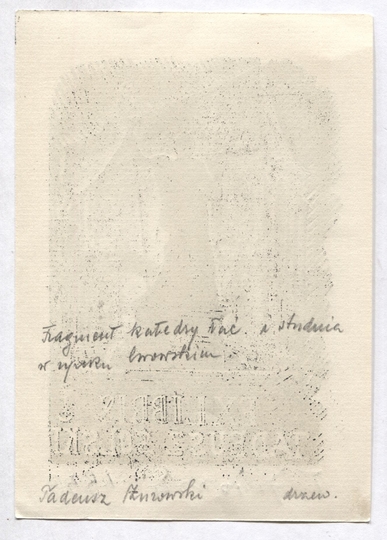 Fragment katedry łać. i studnia
w rynku lwowskim
EX LIBRIS
TADEUSZ
Tadeusz Żurowski drzew.